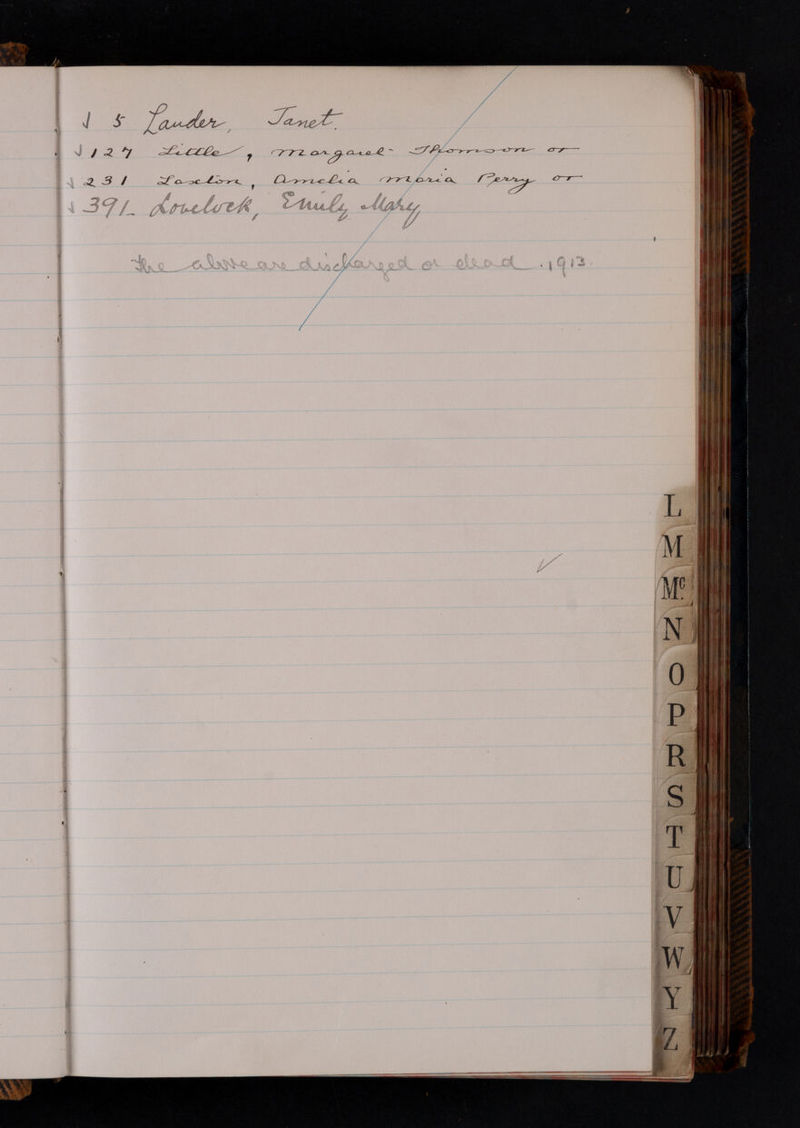 √ 5 Lauder, Janet.
√ 127 Little, Margaret Thomson or
√ 231 Laxton, Amelia Maria Perry or
√ 391 Lovelock, Emily Mary
The above are discharged or dead. 1913.
√
L
M
Mc
N
O
P
R
S
T
U
V
W
Y
Z